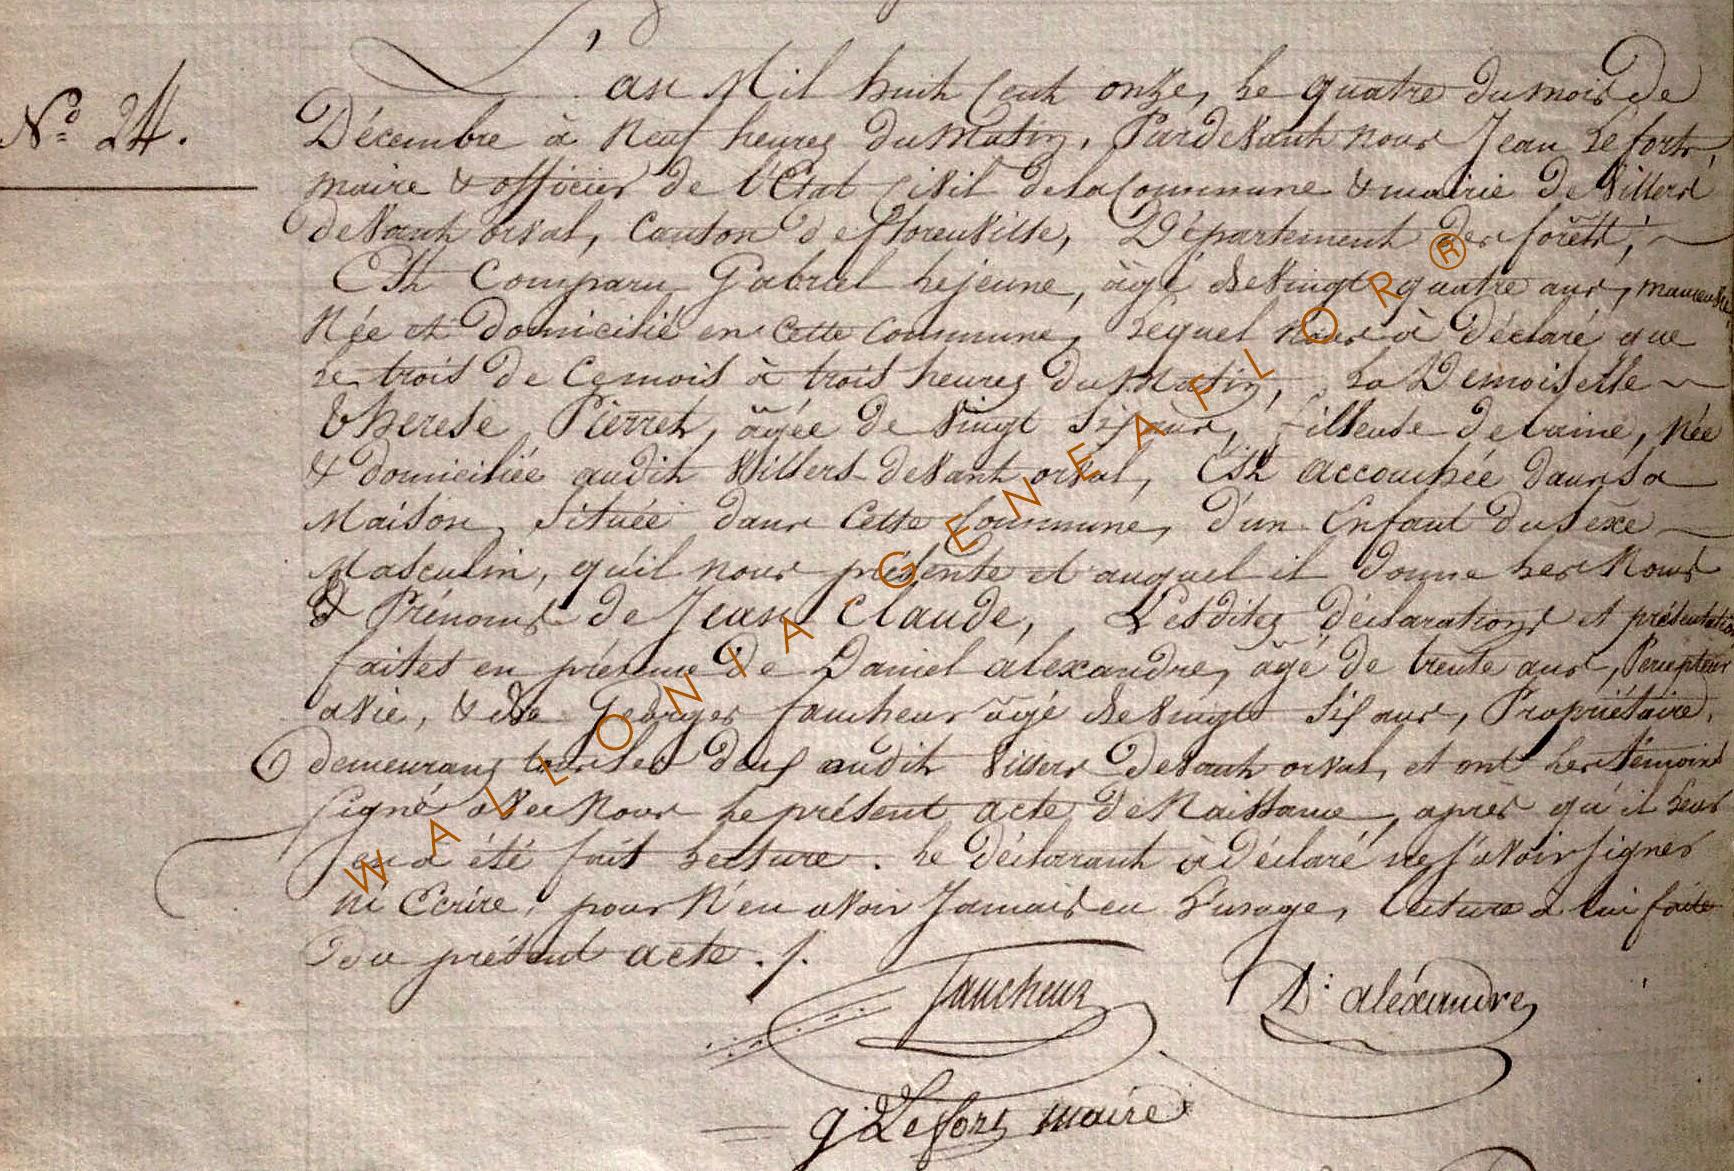 L'an Mil huit Cent onze, Le quatre du mois de
N° 24. Décembre à Neuf heures du Matin, Pardevant nous Jean Lefort,
maire & officier de l'Etat Civil de la Commune & mairie de Villers
devant orval, Canton de florenville, Département des forêtt,
Est Comparu Gabriel Lejeune, âgé de vingt quatre ans,
Née et domicilié en Cette Commune, Lequel nous à déclaré que
Le trois de Ce mois à trois heures du Matin, La Demoiselle
Therese Pierret, âgée de vingt Six ans, filleuse de Laine, Née
& domiciliée audit Villers-devant orval, Est accouchée dans sa
Maison, Située dans Cette Commune, d'un Enfant du Sexe
Masculin, qu'il nous présente et auquel il donne Les Noms
& Prénoms de Jean Claude, Lesdites déclarations et présentation
faites en présence de Daniel alexandre, âgé de trente ans, Percepteur
à Vie, & de Georges faucheur âgé de vingt Six ans, Propriétaire,
demeurans tous les deux audit Villers Devant orval, et ont Les témoins
signé avec Nous Le présent acte de Naissance, après qu'il Leur
en a été fait Lecture. Le Déclarant à déclaré ne savoir signer
ni Ecrire, pour N'en avoir Jamais eu L'usage, Lecture à lui faite
Du présent acte ./.
faucheur D: aléxandre
g: Lefort maire
WALLONIA GENEAFLOR ®